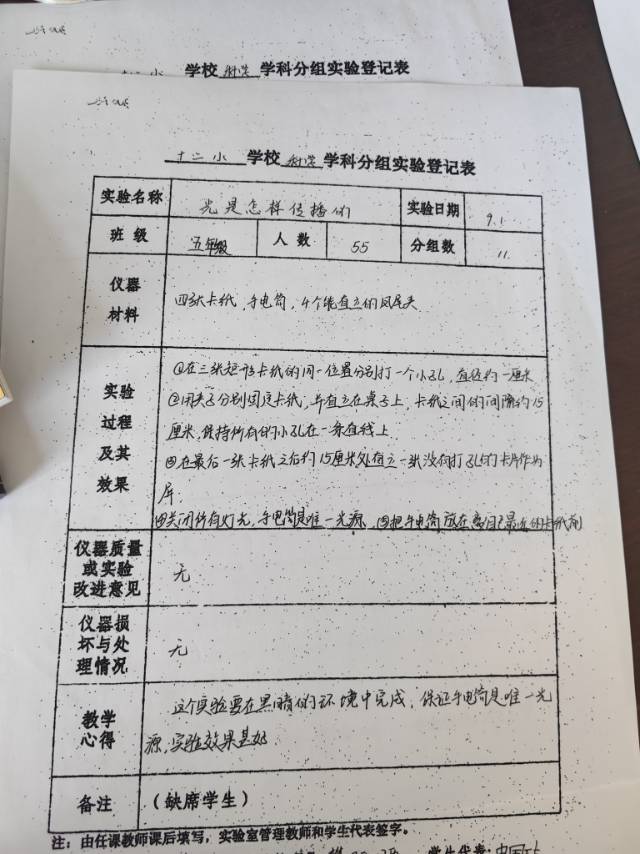 十二小 学校 科学 学科分组实验登记表
十二小 学校 科学 学科分组实验登记表
实验名称 光是怎样传播的 实验日期 9.1
班 级 五年级 人 数 55 分组数 11
仪器
材料
四张卡纸,手电筒,4个能直立的凤尾夹
实验
过程
及其
效果
①在三张矩形卡纸的同一位置分别打一个小孔,直径约一厘米
②用夹子分别固定卡纸,并直立在桌子上,卡纸之间的间隔约15
厘米,保持所有的小孔在一条直线上
③在最后一张卡纸之后约15厘米处直立一张没有打孔的卡片作为
屏
④关闭所有灯光,手电筒是唯一光源,⑤把手电筒放在离自己最近的卡纸前
仪器质量
或实验
改进意见
无
仪器损
坏与处
理情况
无
教学
心得
这个实验要在黑暗的环境中完成,保证手电筒是唯一光
源,实验效果甚好
备注 (缺席学生)
注:由任课教师课后填写,实验室管理教师和学生代表签字。
学生代表: